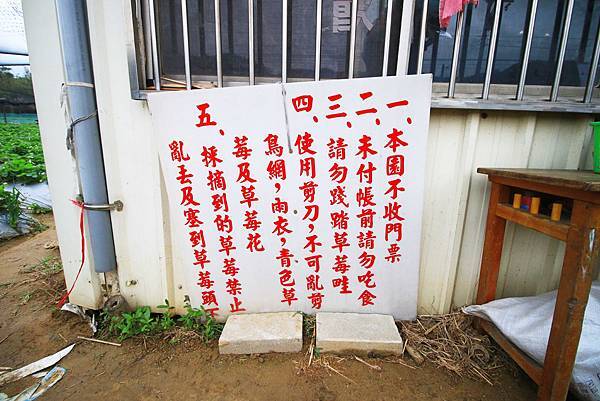 一、本園不收門票
二、未付帳前請勿吃食
三、請勿踐踏草莓畦
四、使用剪刀，不可亂剪
鳥網，雨衣，青色草
莓及草莓花
五、採摘到的草莓禁止
亂丟及塞到草莓頭下